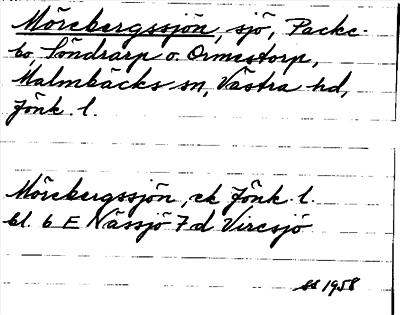 Mörebergssjön, sjö, Packe-
bo, Söndrarp o. Ormestorp,
Malmbäcks sn, Västra hd,
Jönk. l.
Mörebergssjön, ek Jönk. l.
bl. 6 E Nässjö 7 d Viresjö
ss 1958